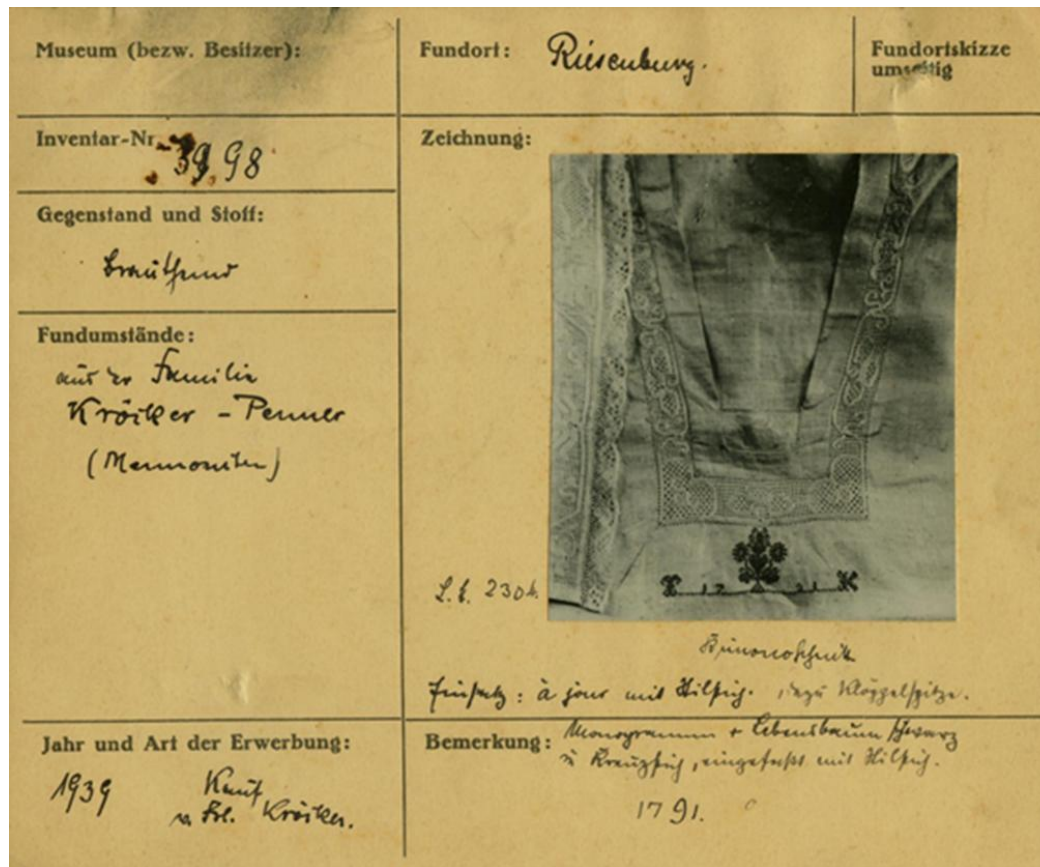 Museum (bezw. Besitzer):
Fundort: Riesenburg.
Fundortskizze
umseitig
Inventar-Nr. 3998
Zeichnung:
Gegenstand und Stoff:
Brauthemd
Fundumstände:
aus der Familie
Kröcker - Penner
(Mennoniten)
Kimonoschnitt
Einsatz: à jour mit Stilstich. dazu Klöppelspitze.
Jahr und Art der Erwerbung:
1939 Kauf
v. Frl. Kröcker.
Bemerkung: Monogramm + Lebensbaum schwarz
i. Kreuzstich, eingefasst mit Stilstich.
1791.